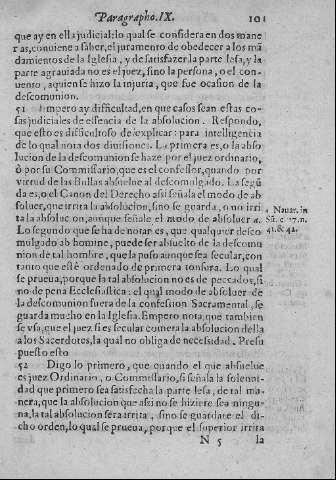 Paragrapho. IX. 101
que ay en ella judicial: lo qual se considera en dos mane
ras, conuiene a saber, el juramento de obedecer a los mã
damientos de la Iglesia, y de satisfazer la parte lesa, y la
parte agrauiada no es el juez, sino la persona, o el con-
uento, a quien se hizo la injuria, que fue ocasion de la
descomunion.
51 Empero ay difficultad, en que casos sean estas co-
sas judiciales de essencia de la absolucion. Respondo,
que esto es dificultoso de explicar: para intelligencia
de lo qual nota dos diuisiones. La primera es, o la abso
lucion de la descomunion se haze por el juez ordinario,
ò por su Commissario, que es el confessor, quando por
virtud de las Bullas absuelue al descomulgado. La següa
da es, o el Canon del Derecho assi señala el modo de ab
soluer, que irrita la absolucion, sino se guarda, o no irri
ta la absolucion, aunque señale el modo de absoluer a.
a Nauar. in
Sũ. c. 27. n.
41. & 42.
Lo segundo que se ha de notar es, que qualquier desco
mulgado ab homine, puede ser absuelto de la descomu
nion de tal hombre, que la puso aunque sea secular, con
tanto que estè ordenado de primera tonsura. Lo qual
se prueua, porque la tal absolucion no es de peccados, si
no de pena Ecclesiastica: el qual modo de absoluer de
la descomunion fuera de la confession Sacramental, se
guarda mucho en la Iglesia. Empero nota, que tambien
se vsa, que el juez si es secular cometa la absolucion della
a los Sacerdotes, la qual no obliga de necessidad. Presu
puesto esto
52 Digo lo primero, que quando el que absuelue
es juez Ordinario, o Commissario, si señala la solenni-
dad que primero sea satisfecha la parte lesa, de tal ma-
nera, que la absolucion que assi no se hiziere sea ningu-
na, la tal absolucion serà irrita, sino se guardare el di-
cho orden, lo qual se prueua, porque el superior irrita
N 5 la